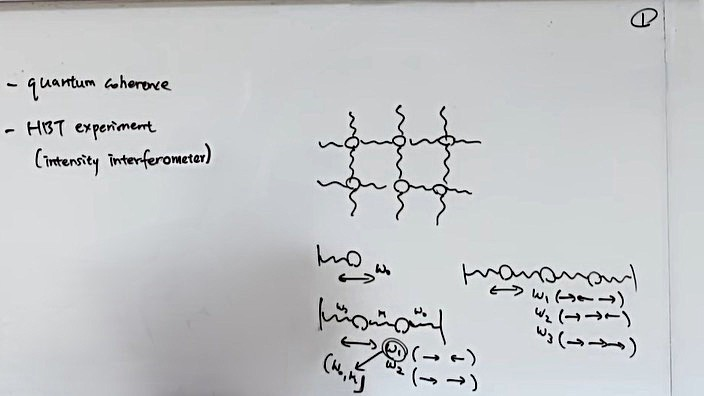 ①
- quantum coherence
- HBT experiment
(intensity interferometer)
ω₀
ω₀ κ ω₀
ω₁ (→ ←)
ω₂ (→ →)
(ω₀, κ)
ω₁ (→ ← →)
ω₂ (→ → ←)
ω₃ (→ → →)